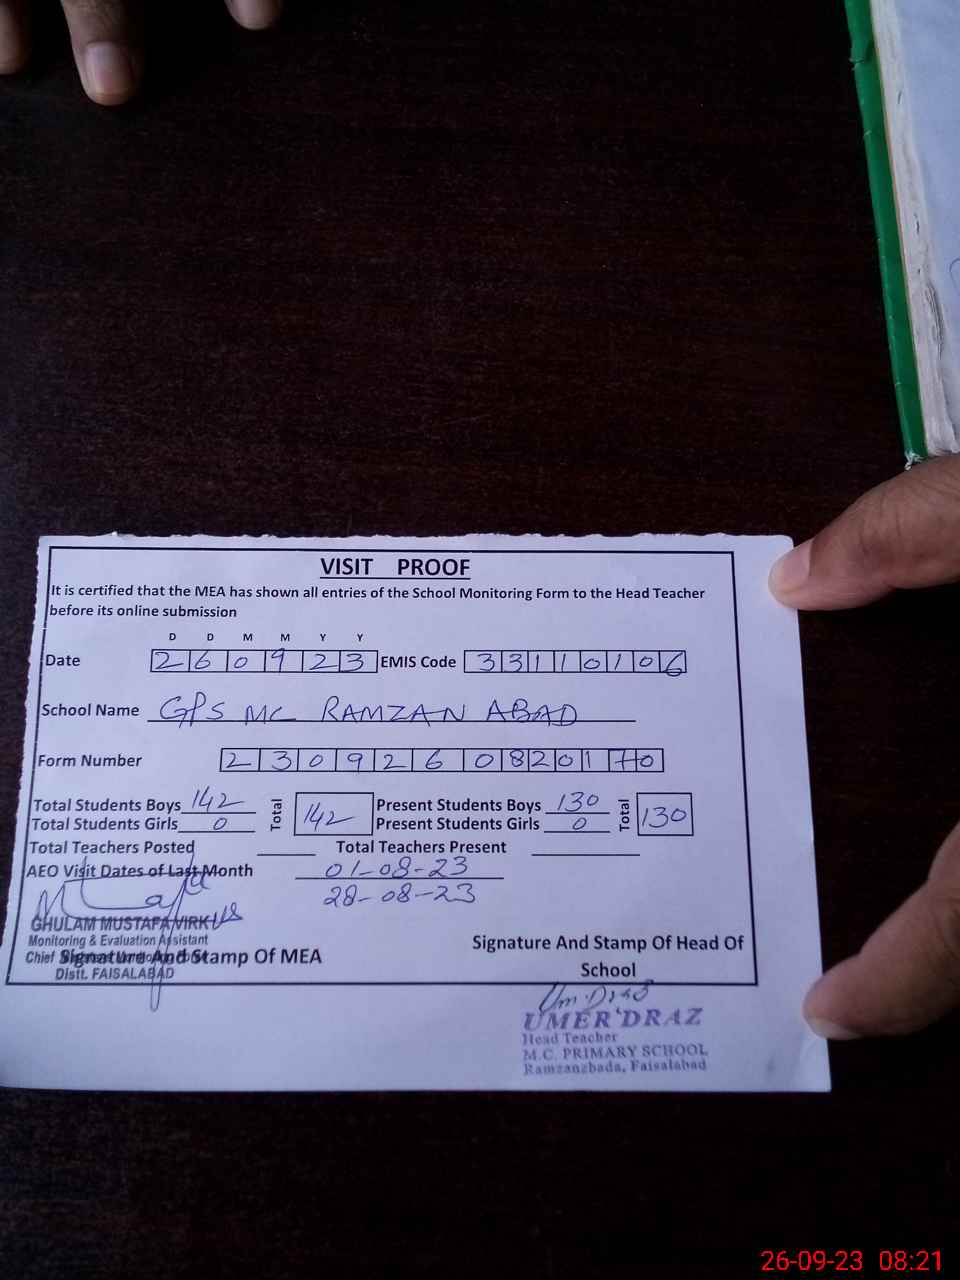 VISIT PROOF
It is certified that the MEA has shown all entries of the School Monitoring Form to the Head Teacher
before its online submission
D D M M Y Y
Date 260923 EMIS Code 33110106
School Name GPS MC RAMZAN ABAD
Form Number 2309260820170
Total Students Boys 142 Total 142 Present Students Boys 130 Total 130
Total Students Girls 0 Present Students Girls 0
Total Teachers Posted Total Teachers Present
AEO Visit Dates of Last Month 01-08-23
28-08-23
GHULAM MUSTAFA VIRK
Monitoring & Evaluation Assistant
Chief
Signature And Stamp Of MEA
Distt. FAISALABAD
Signature And Stamp Of Head Of
School
UMER DRAZ
Head Teacher
M.C. PRIMARY SCHOOL
Ramzanzbada, Faisalabad
26-09-23 08:21